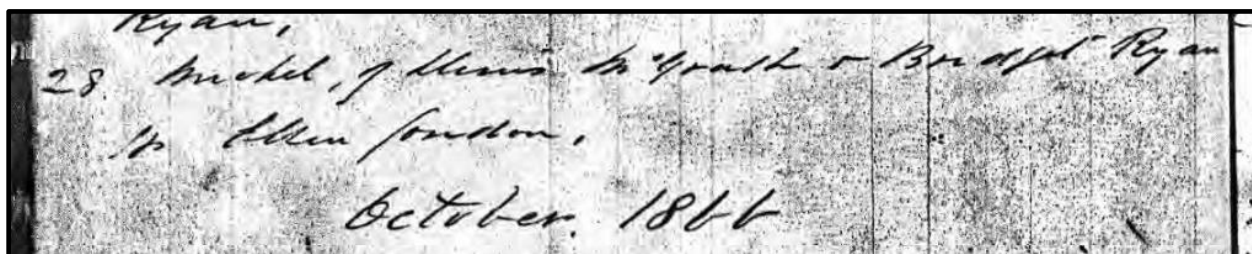 Ryan,
28. Michel, of Denis McGrath & Bridget Ryan
Sp Ellen Condon,
October. 1866